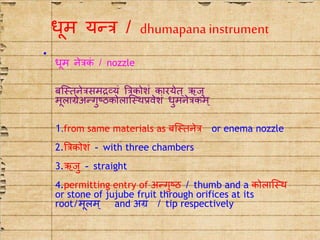 धूम यन्त्र / dhumapana instrument
धूम नेत्रकं / nozzle
बस्तिनेत्रसमद्रव्यं त्रिकोशं कारयेत् ऋजु
मूलाग्रेअन्गुष्ठकोलास्थिप्रवेशं धुमनेत्रकम्
1.from same materials as बस्तिनेत्र or enema nozzle
2.त्रिकोशं - with three chambers
3.ऋजु - straight
4.permitting entry of अन्गुष्ठ / thumb and a कोलास्थि
or stone of jujube fruit through orifices at its
root/मूलम् and अग्र / tip respectively